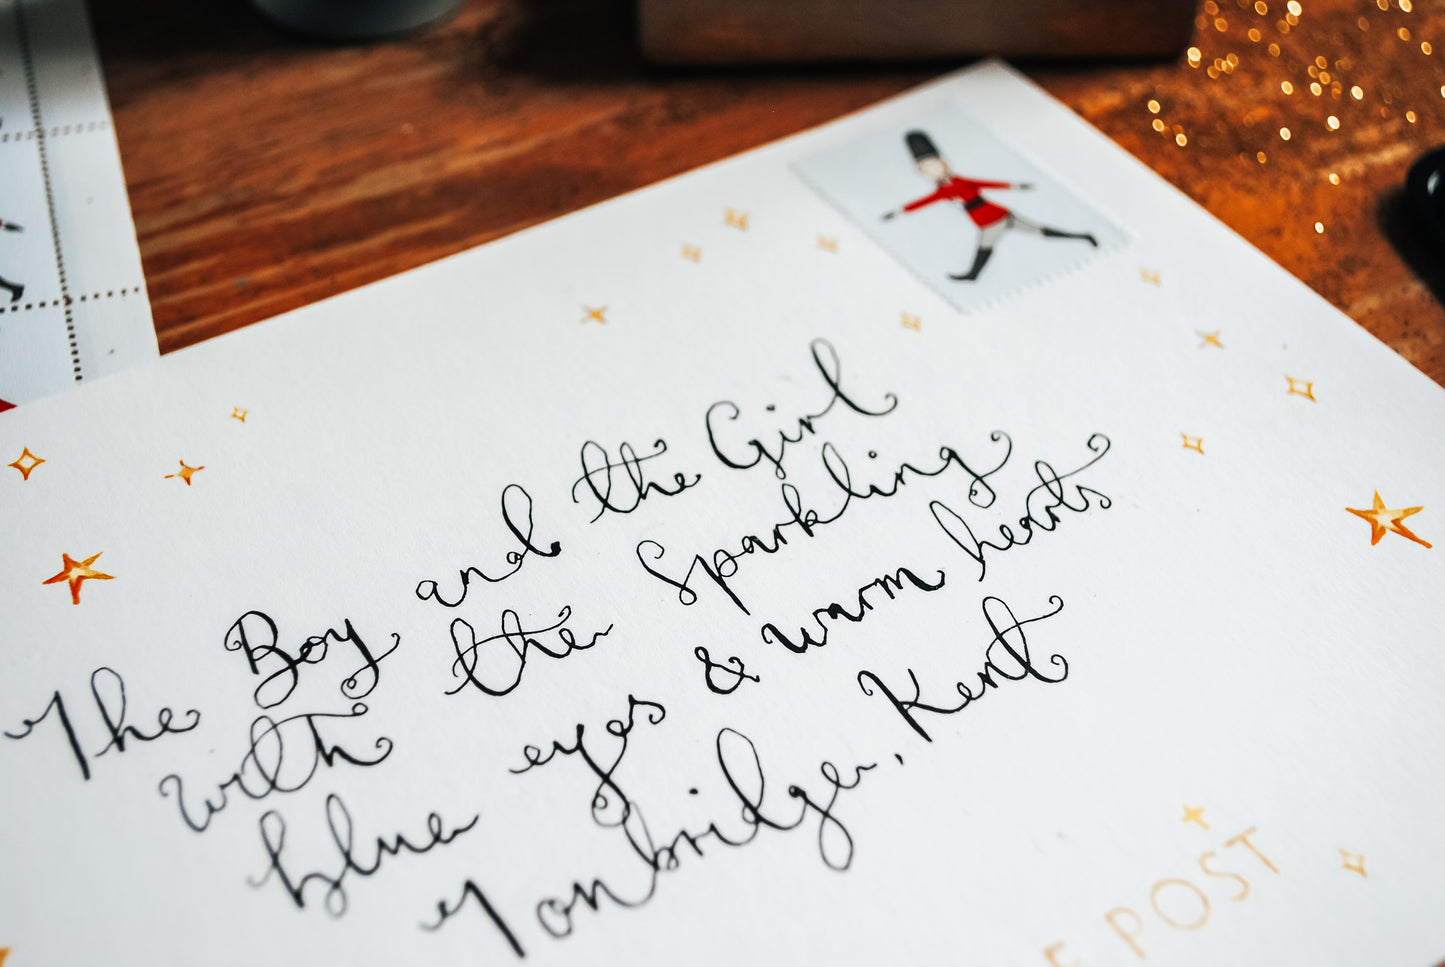 The Boy and the Girl
with the Sparkling
blue eyes & warm hearts
Tonbridge, Kent
POST